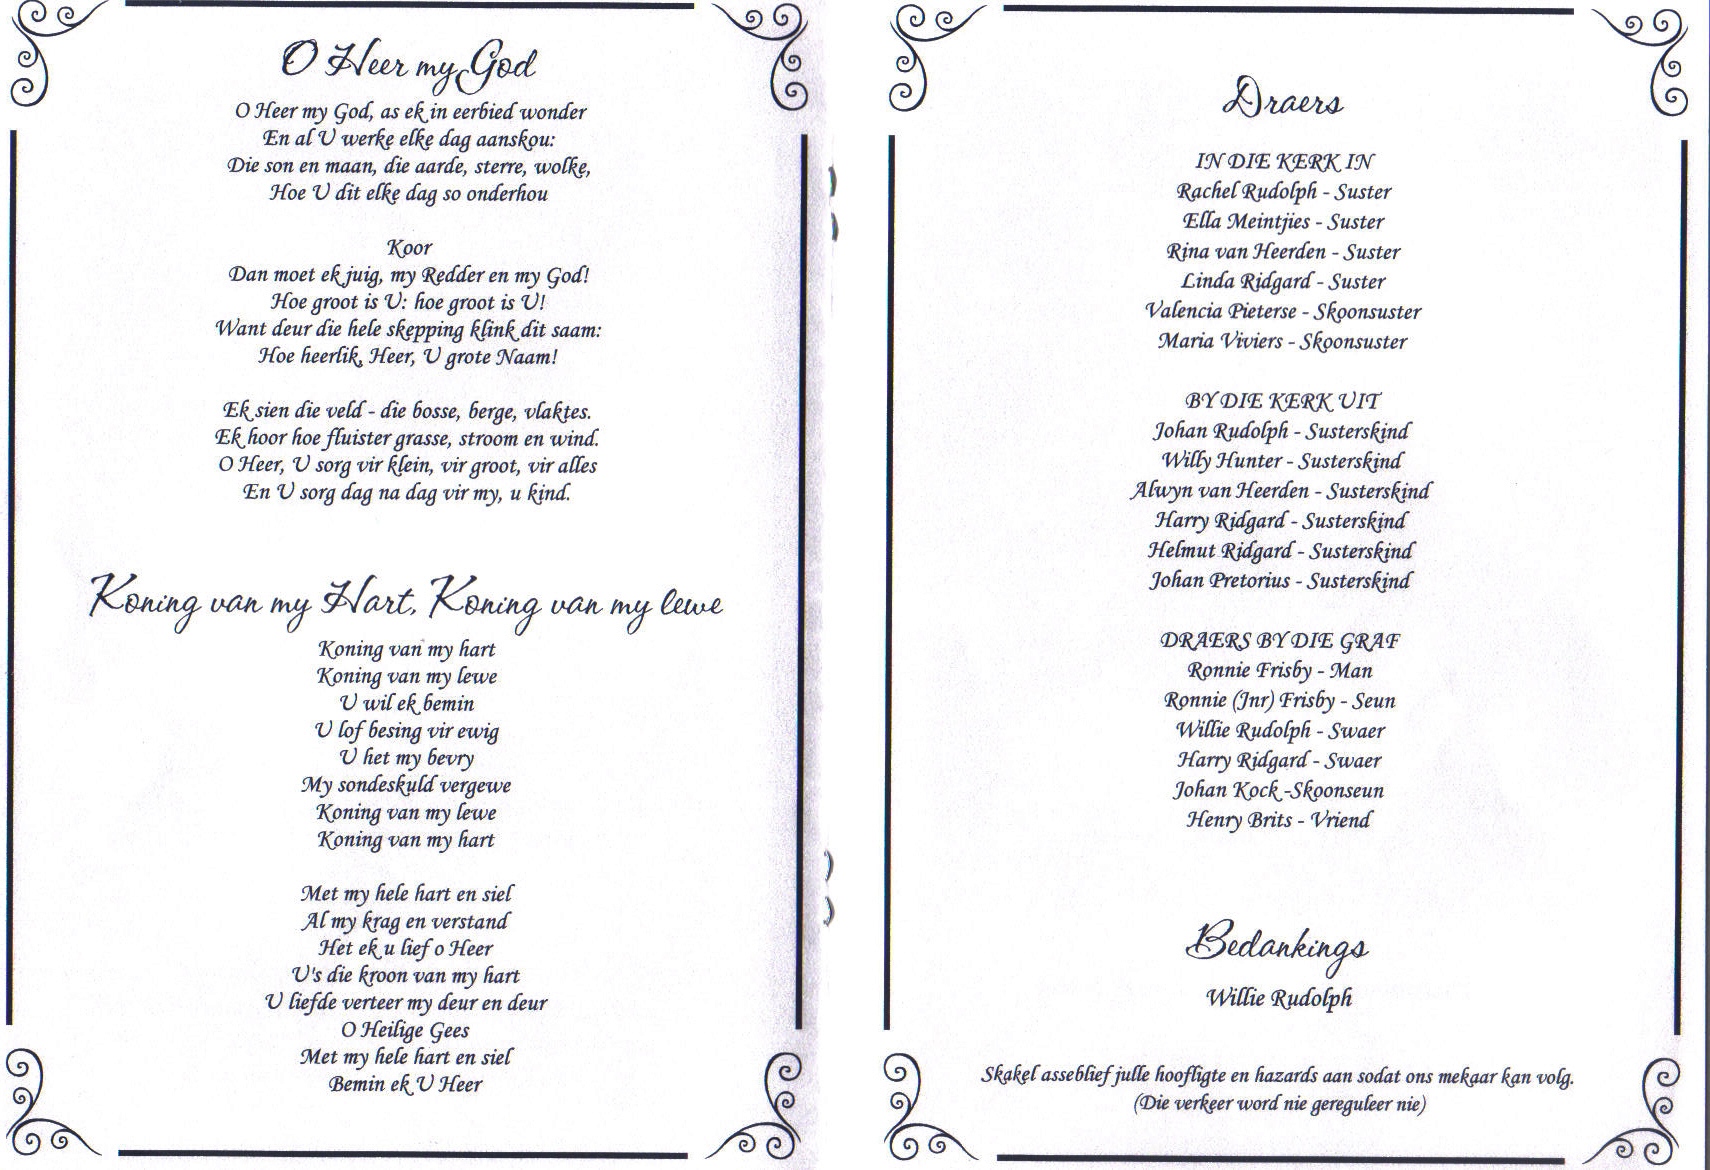 O Heer my God
O Heer my God, as ek in eerbied wonder
En al U werke elke dag aanskou:
Die son en maan, die aarde, sterre, wolke,
Hoe U dit elke dag so onderhou
Koor
Dan moet ek juig, my Redder en my God!
Hoe groot is U: hoe groot is U!
Want deur die hele skepping klink dit saam:
Hoe heerlik, Heer, U grote Naam!
Ek sien die veld - die bosse, berge, vlaktes.
Ek hoor hoe fluister grasse, stroom en wind.
O Heer, U sorg vir klein, vir groot, vir alles
En U sorg dag na dag vir my, u kind.
Koning van my Hart, Koning van my lewe
Koning van my hart
Koning van my lewe
U wil ek bemin
U lof besing vir ewig
U het my bevry
My sondeskuld vergewe
Koning van my lewe
Koning van my hart
Met my hele hart en siel
Al my krag en verstand
Het ek u lief o Heer
U's die kroon van my hart
U liefde verteer my deur en deur
O Heilige Gees
Met my hele hart en siel
Bemin ek U Heer
Draers
IN DIE KERK IN
Rachel Rudolph - Suster
Ella Meintjies - Suster
Rina van Heerden - Suster
Linda Ridgard - Suster
Valencia Pieterse - Skoonsuster
Maria Viviers - Skoonsuster
BY DIE KERK UIT
Johan Rudolph - Susterskind
Willy Hunter - Susterskind
Alwyn van Heerden - Susterskind
Harry Ridgard - Susterskind
Helmut Ridgard - Susterskind
Johan Pretorius - Susterskind
DRAERS BY DIE GRAF
Ronnie Frisby - Man
Ronnie (Jnr) Frisby - Seun
Willie Rudolph - Swaer
Harry Ridgard - Swaer
Johan Kock -Skoonseun
Henry Brits - Vriend
Bedankings
Willie Rudolph
Skakel asseblief julle hoofligte en hazards aan sodat ons mekaar kan volg.
(Die verkeer word nie gereguleer nie)